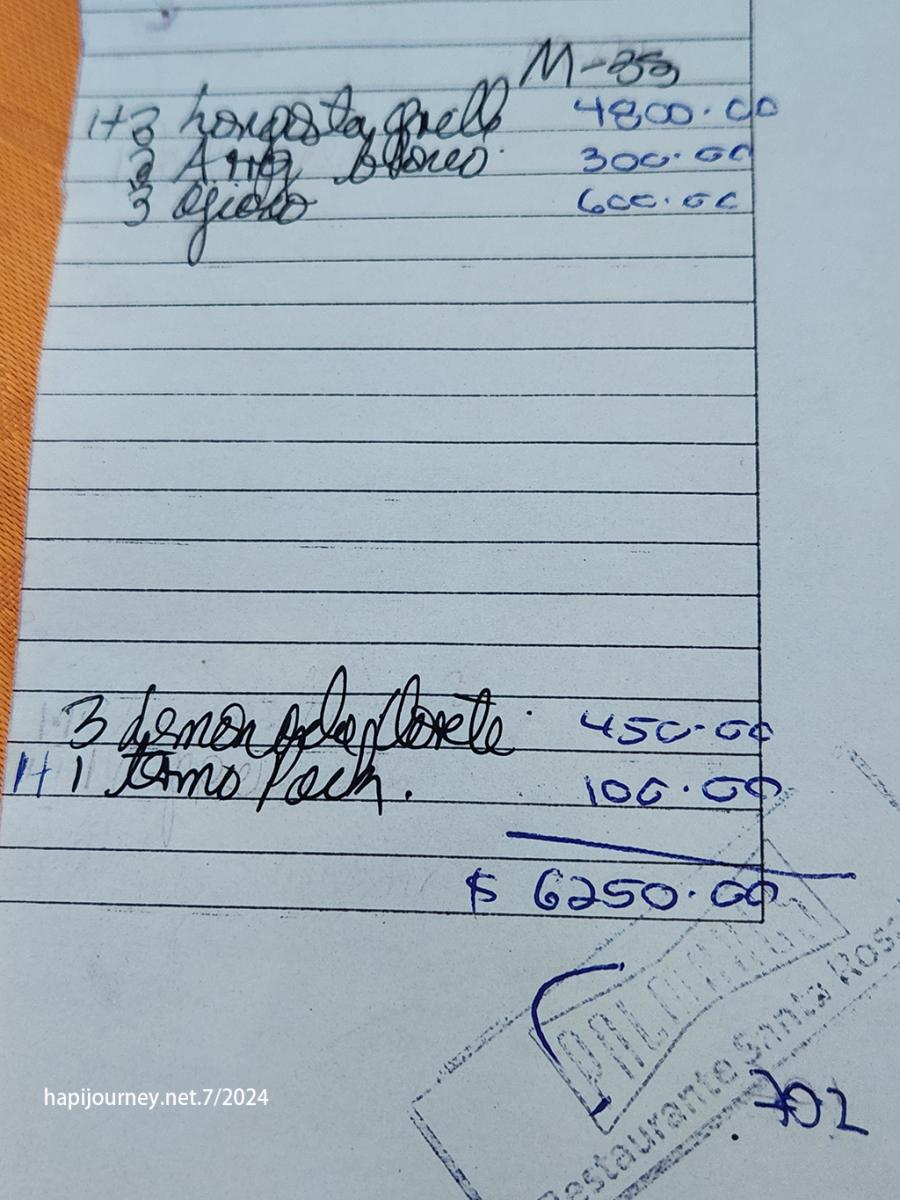 M-33
1+3 Langosta grill 4800.00
2 Arroz blanco 300.00
3 600.00
3 Lemonada 450.00
1+1 Termo Pack. 100.00
$ 6250.00
Restaurante Santa Rosa
702
hapijourney.net.7/2024